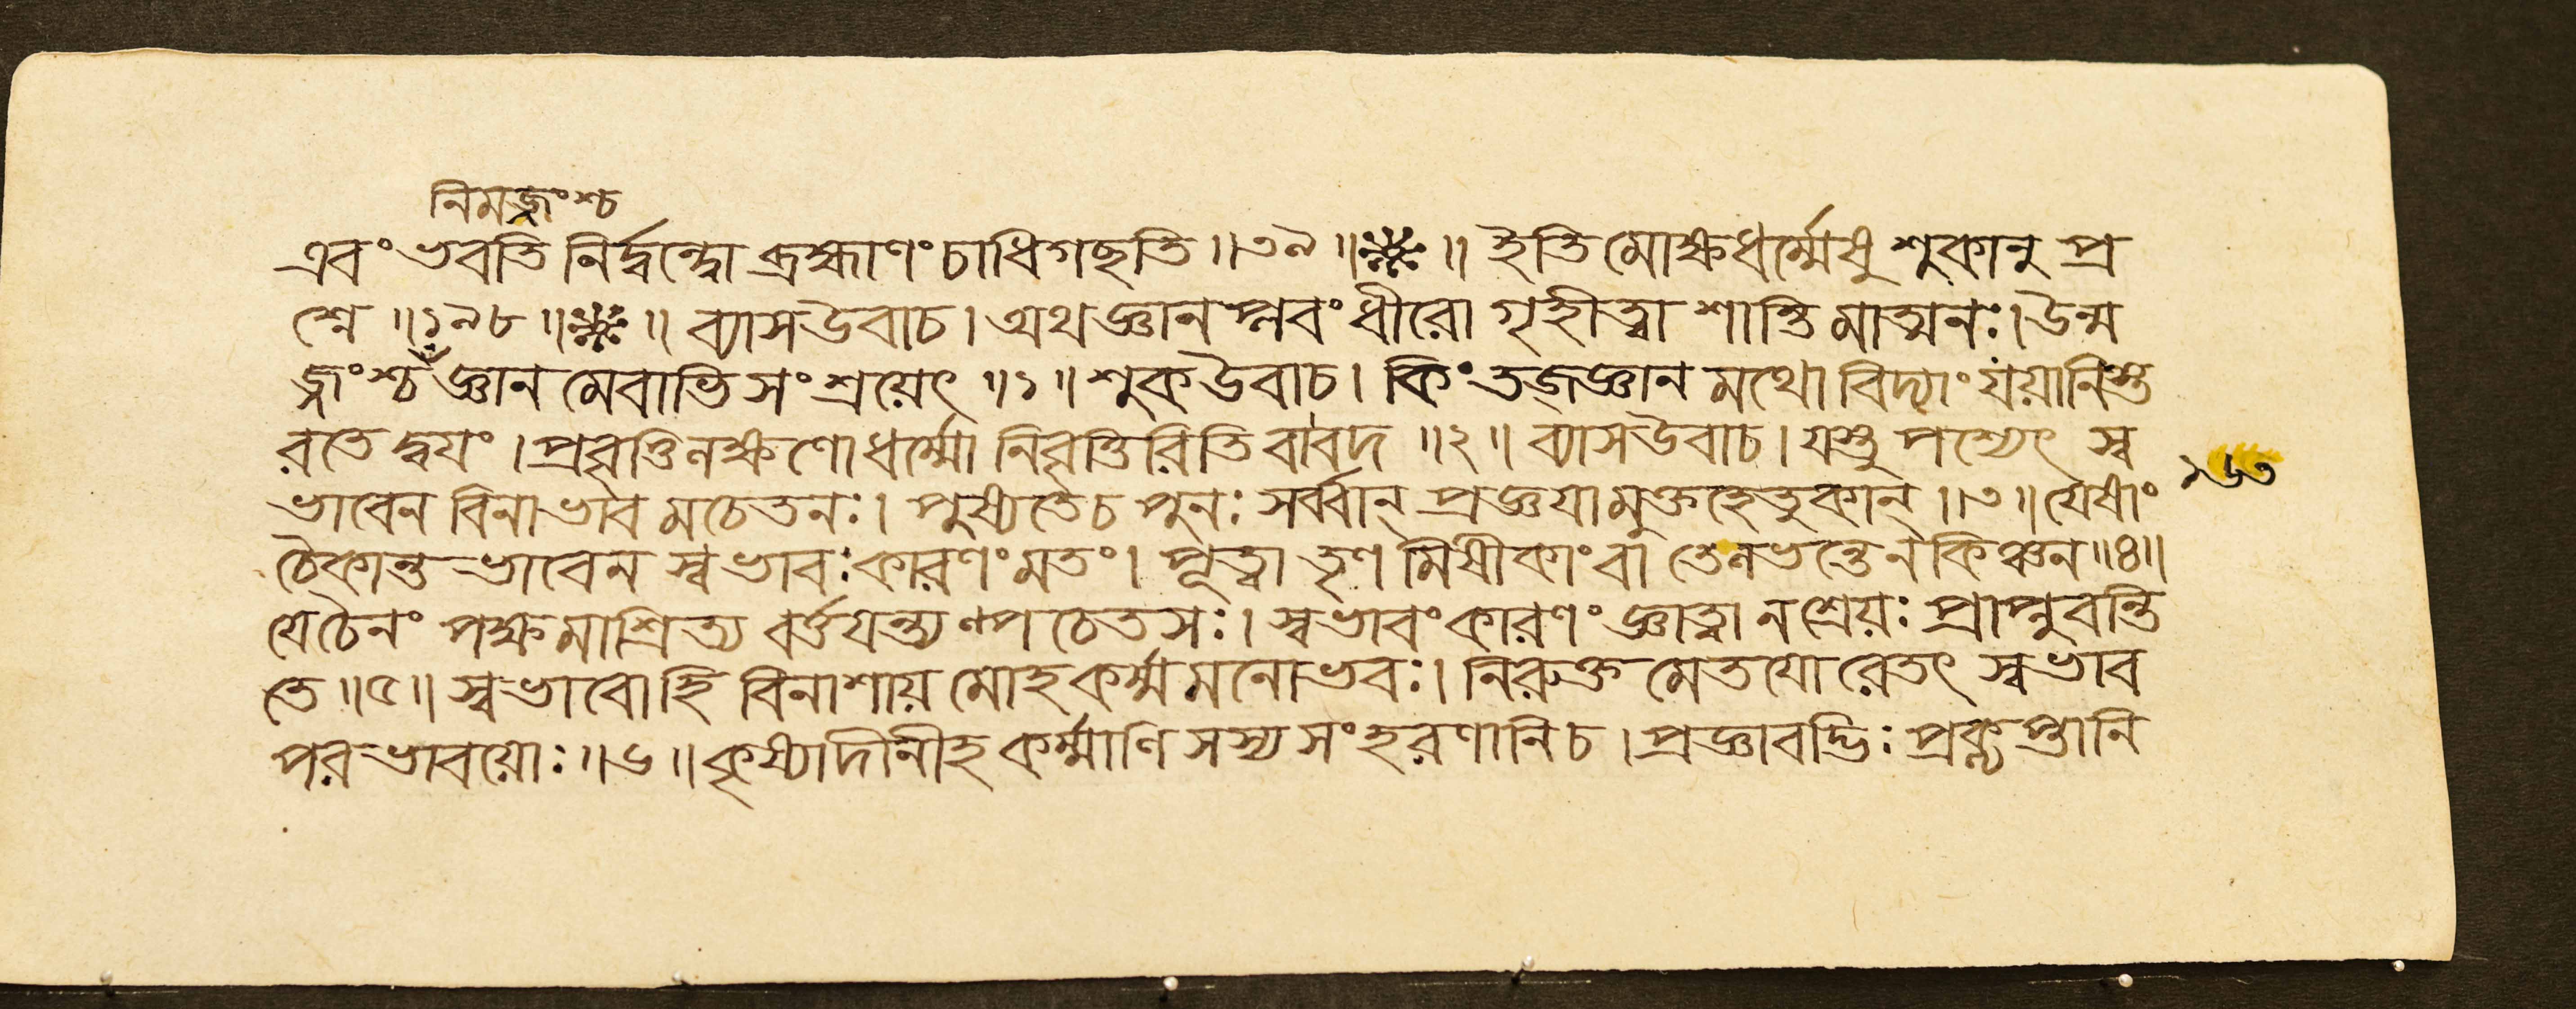 নিমজ্জংশ্চ
এবং ভবতি নির্দ্বন্দ্বো ব্রহ্মাণং চাধিগছতি ॥৩৯॥ ❋ ॥ ইতি মোক্ষধর্ম্মেষু শুকানু প্র
শ্নে ॥১৯৮॥ ❋ ॥ ব্যাসউবাচ। অথ জ্ঞান প্লবং ধীরো গৃহীত্বা শান্তি মাত্মনঃ। উন্ম
জ্জংশ্চ জ্ঞান মেবাভিসংশ্রয়েৎ ॥১॥ শুকউবাচ। কিং তজ্জ্ঞান মথো বিদ্যাং যযানিস্ত
রতে দ্বযং। প্রবৃত্তিলক্ষণো ধর্ম্মো নিবৃত্তিরিতি বাবদ ॥২॥ ব্যাসউবাচ। যস্তু পশ্যেৎ স্ব
ভাবেন বিনাভাব মচেতনঃ। পুষ্যতেচ পুনঃ সর্ব্বান্ প্রজ্ঞযা মুক্তহেতুকান্ ॥৩॥ যেষাং
চৈকান্ত ভাবেন স্বভাবঃ কারণং মতং। পূত্বা তৃণ মিষীকাং বা তেনভন্তেন কিঞ্চন ॥৪॥
যে চৈনং পক্ষমাশ্রিত্য বর্ত্তযন্ত্যল্প চেতসঃ। স্বভাবং কারণং জ্ঞাত্বা নশ্রেয়ঃ প্রাপ্নুবন্তি
তে ॥৫॥ স্বভাবোহি বিনাশায় মোহকর্ম্মমনোভবঃ। নিরুক্ত মেতযো রেতৎ স্বভাব
পরভাবয়োঃ ॥৬॥ কৃষ্যাদীনীহ কর্ম্মাণি সস্য সংহরণানিচ। প্রজ্ঞাবদ্ভিঃ প্রকৢপ্তানি
১৬৩